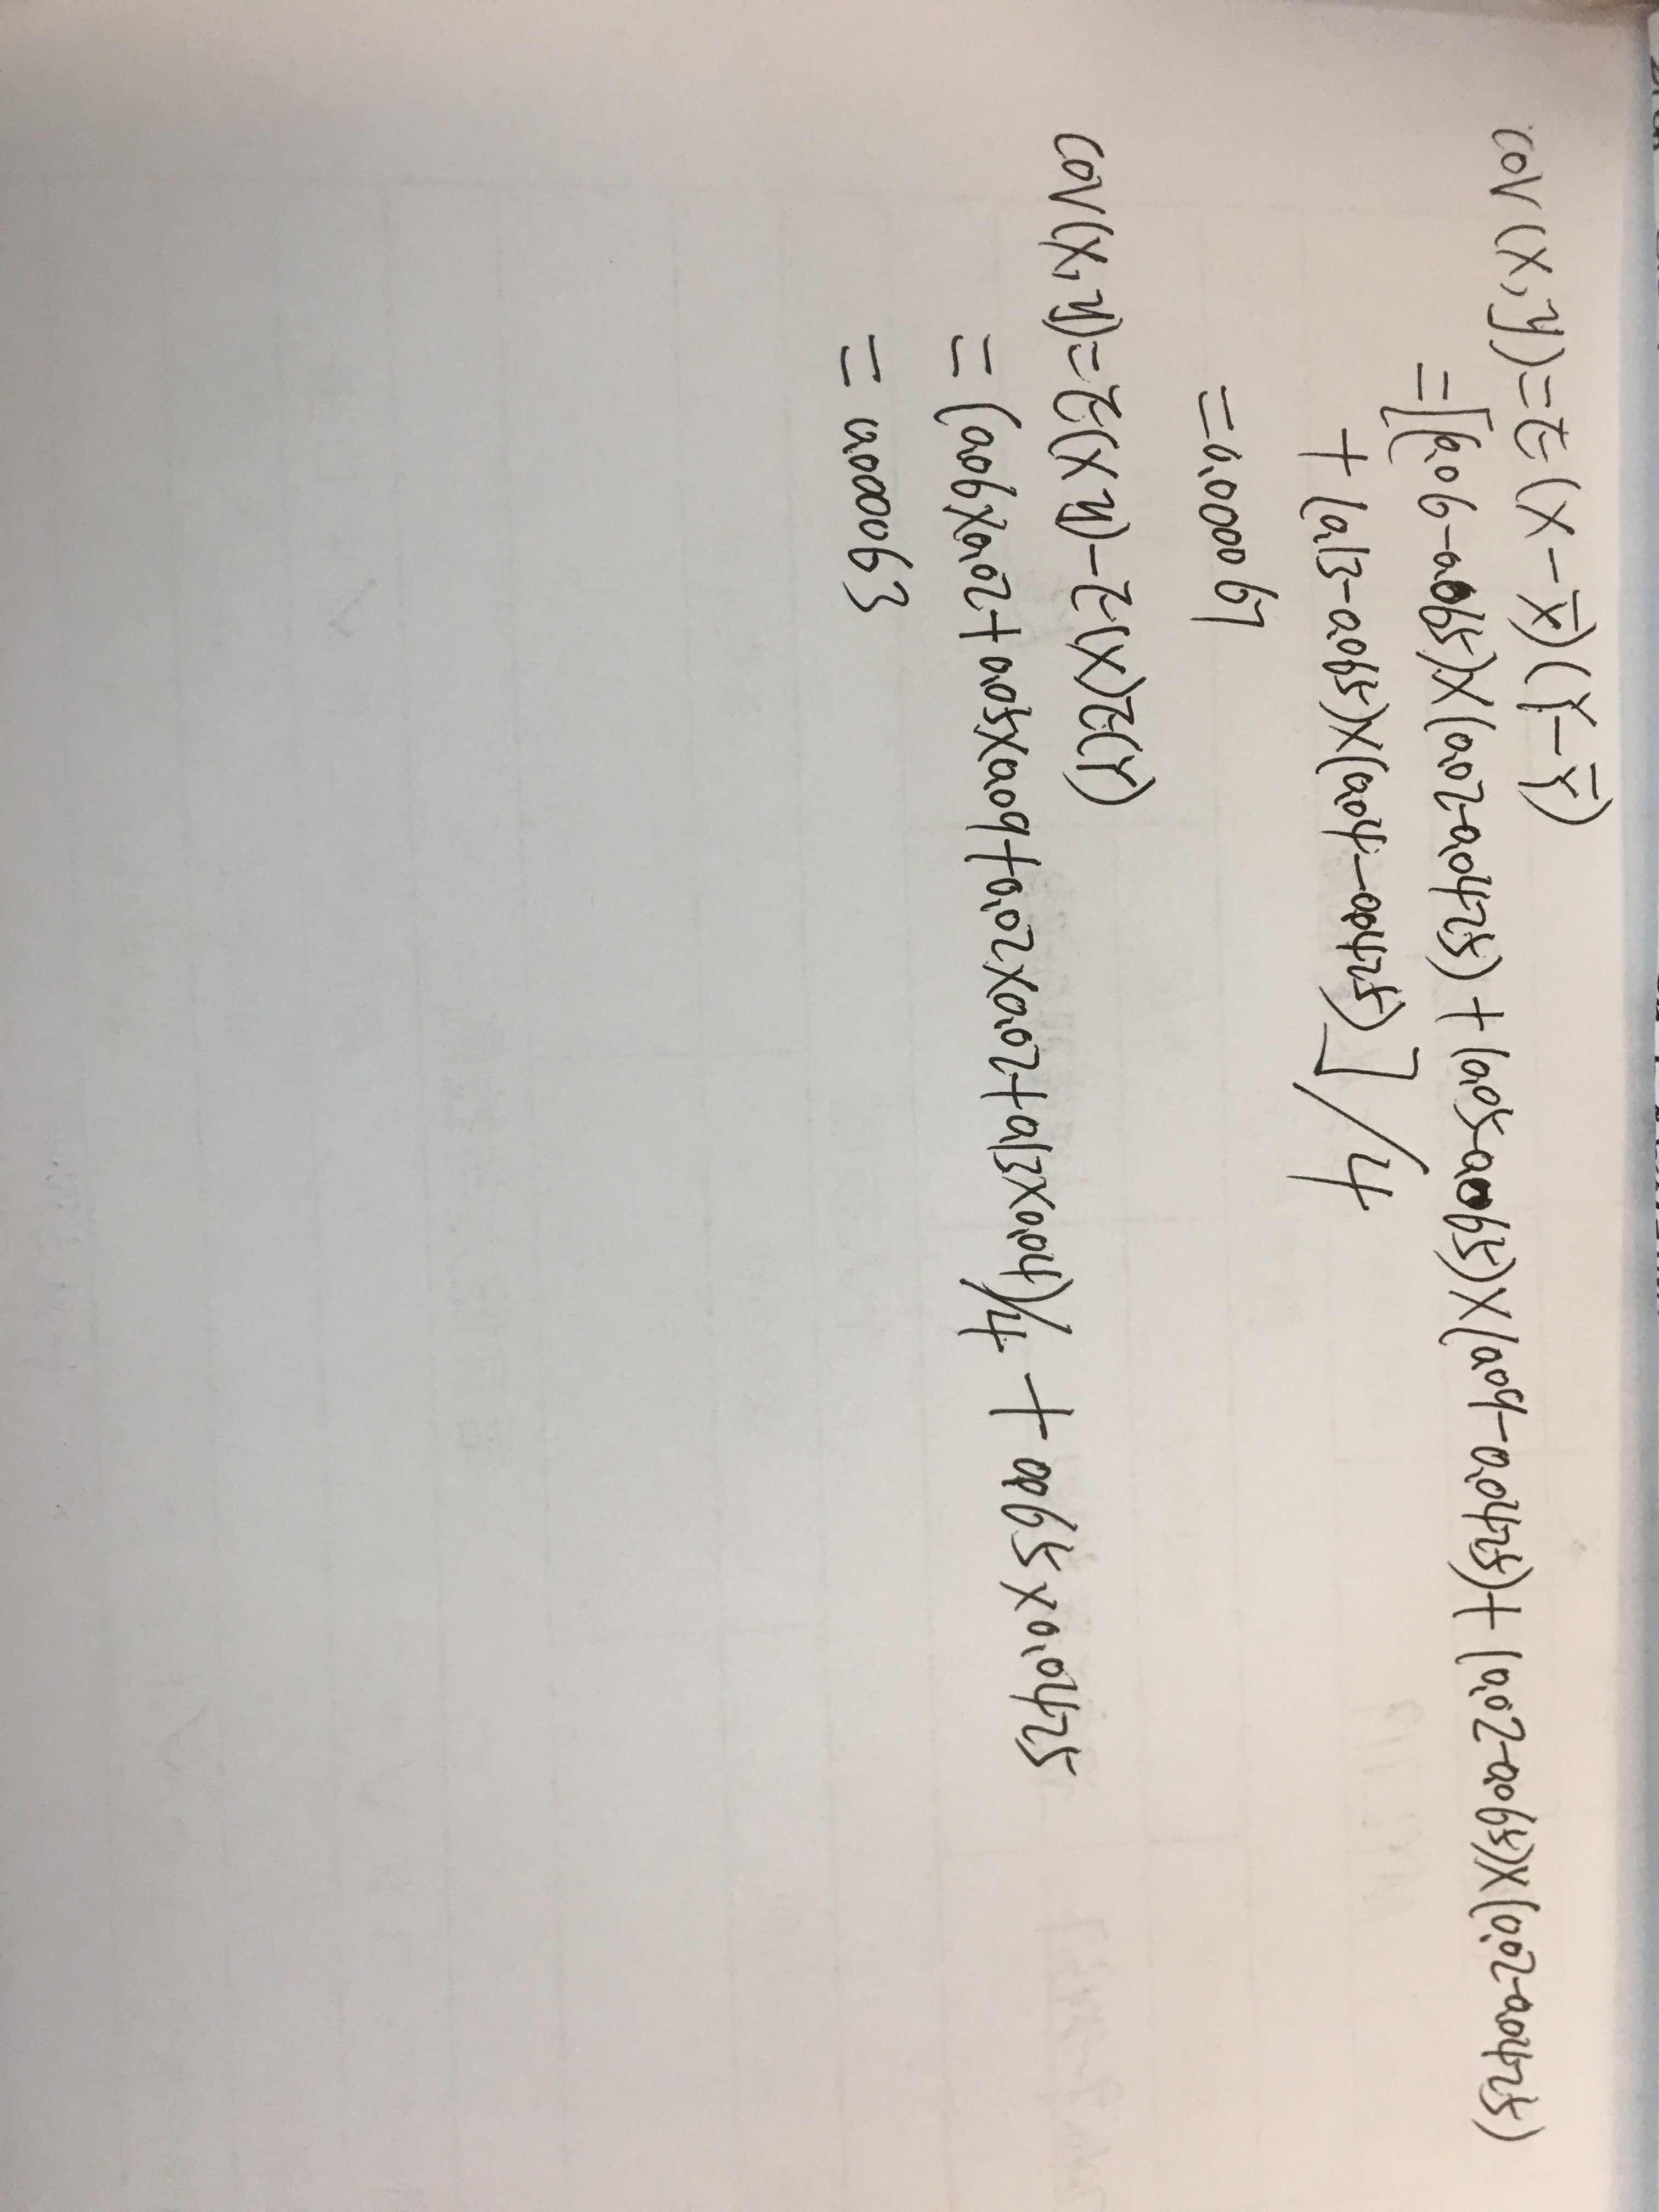 COV(X,Y)=E(X-X̄)(Y-Ȳ)
=[(0.06-0.065)X(0.02-0.0425)+(0.05-0.065)X(0.09-0.0425)+(0.02-0.065)X(0.02-0.0425)
+(0.13-0.065)X(0.04-0.0425)]/4
=0.00006
COV(X,Y)=E(XY)-E(X)E(Y)
=(0.06X0.02+0.05X0.09+0.02X0.02+0.13X0.04)/4+0.065X0.0425
=0.000063